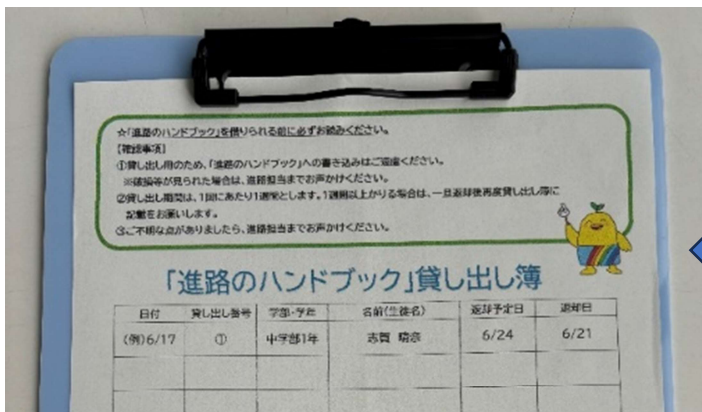 ☆「進路のハンドブック」を借りられる前に必ずお読みください。
【確認事項】
①貸し出し用のため、「進路のハンドブック」への書き込みはご遠慮ください。
※破損等が見られた場合は、進路担当までお声かけください。
②貸し出し期間は、1回にあたり1週間とします。1週間以上かりる場合は、一旦返却後再度貸し出し簿に
記載をお願いします。
③ご不明な点がありましたら、進路担当までお声かけください。
「進路のハンドブック」貸し出し簿
日付 貸し出し番号 学部・学年 名前(生徒名) 返却予定日 返却日
(例)6/17 ① 中学部1年 志賀 晴奈 6/24 6/21